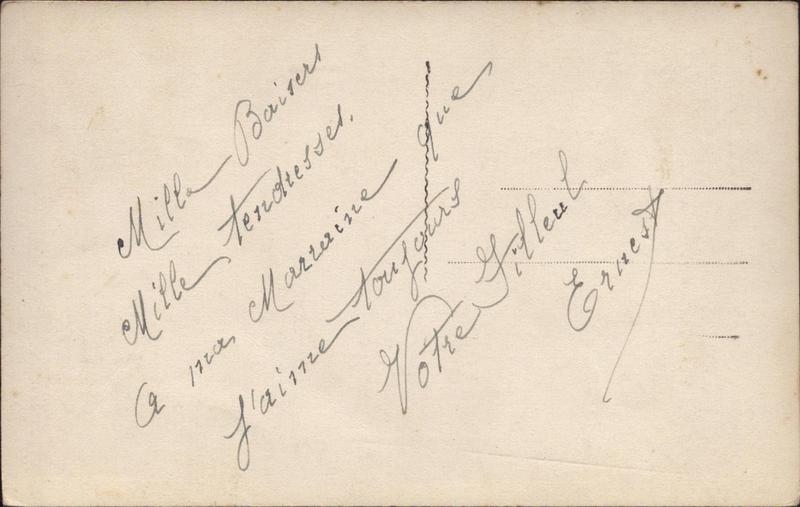 Mille Baisers
Mille tendresses.
A ma Marraine que
j'aime toujours
Votre Filleul
Ernest